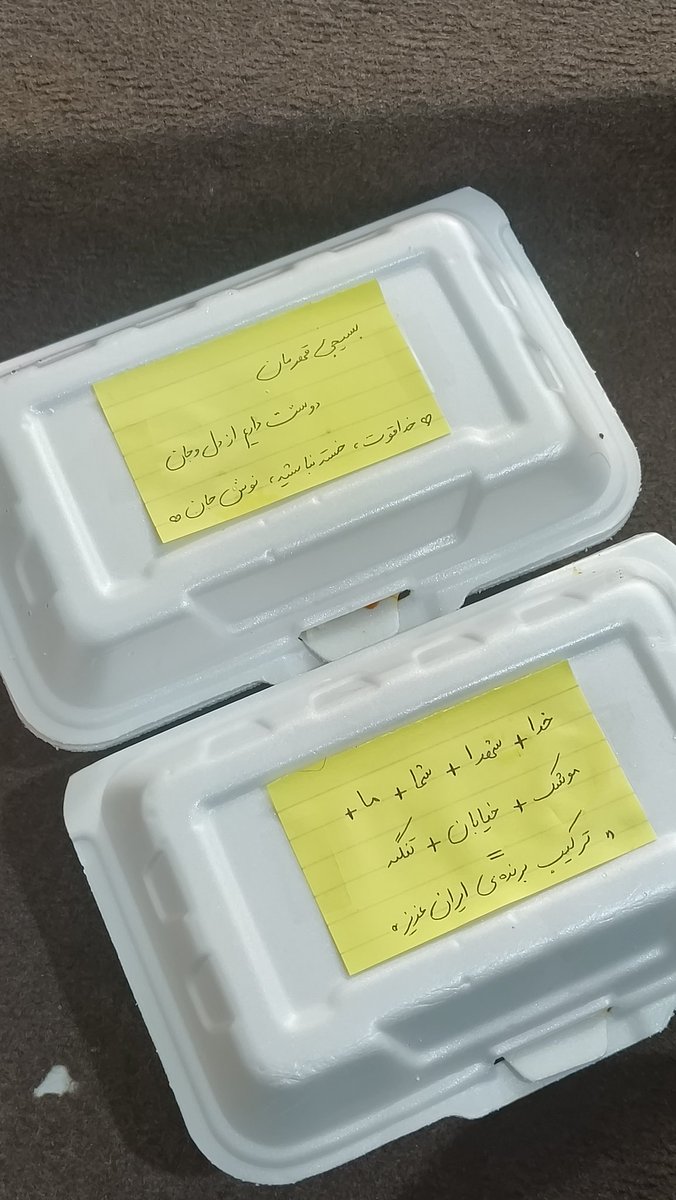 بسیجی قهرمان
دوستت داریم از دل و جان
♡ خداقوت، خسته نباشید، نوش جان ♡
خدا + شهدا + شما + ما +
موشک + خیابان + تنگه
=
" ترکیب برنده‌ی ایران عزیز "